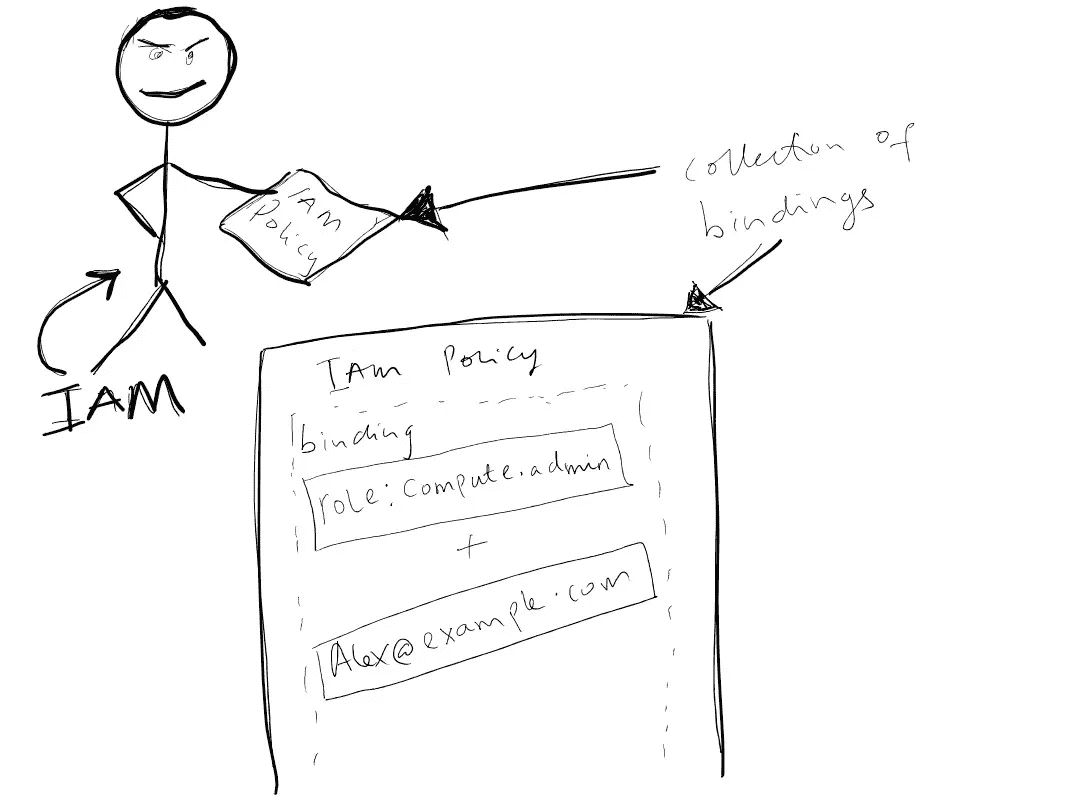 IAM
Policy
collection of
bindings
IAM
IAM Policy
binding
role: compute.admin
+
Alex@example.com